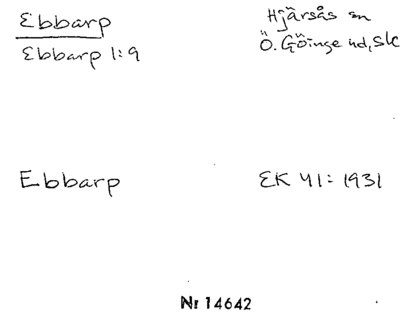 Ebbarp
Ebbarp 1:9
Hjärsås sn
Ö. Göinge hd, Sk
Ebbarp
EK 41: 1931
Nr 14642